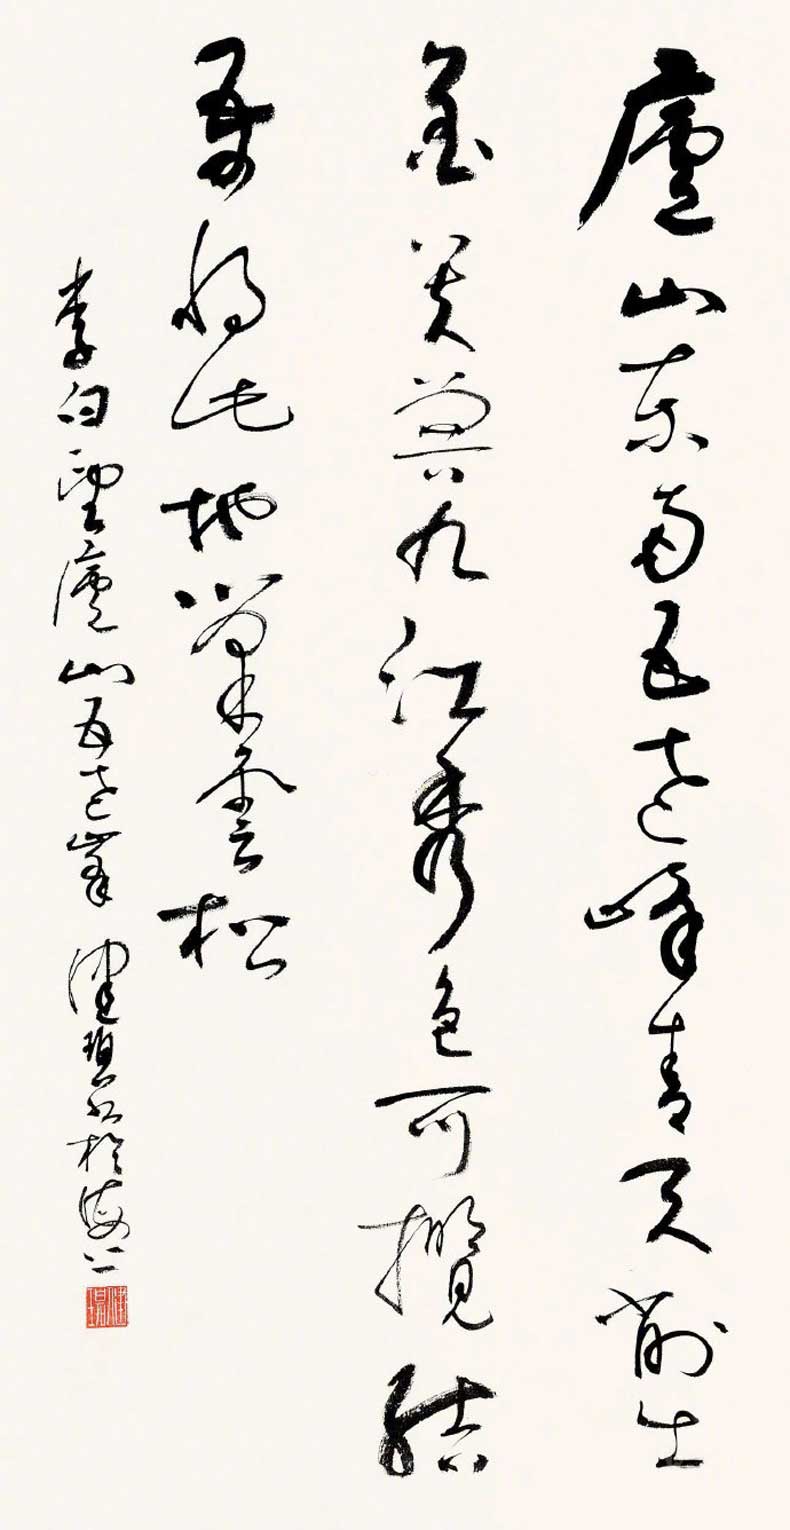 廬山東南五老峰青天削出
金芙蓉九江秀色可攬結
吾將此地巢雲松
李白望廬山五老峯 於海上